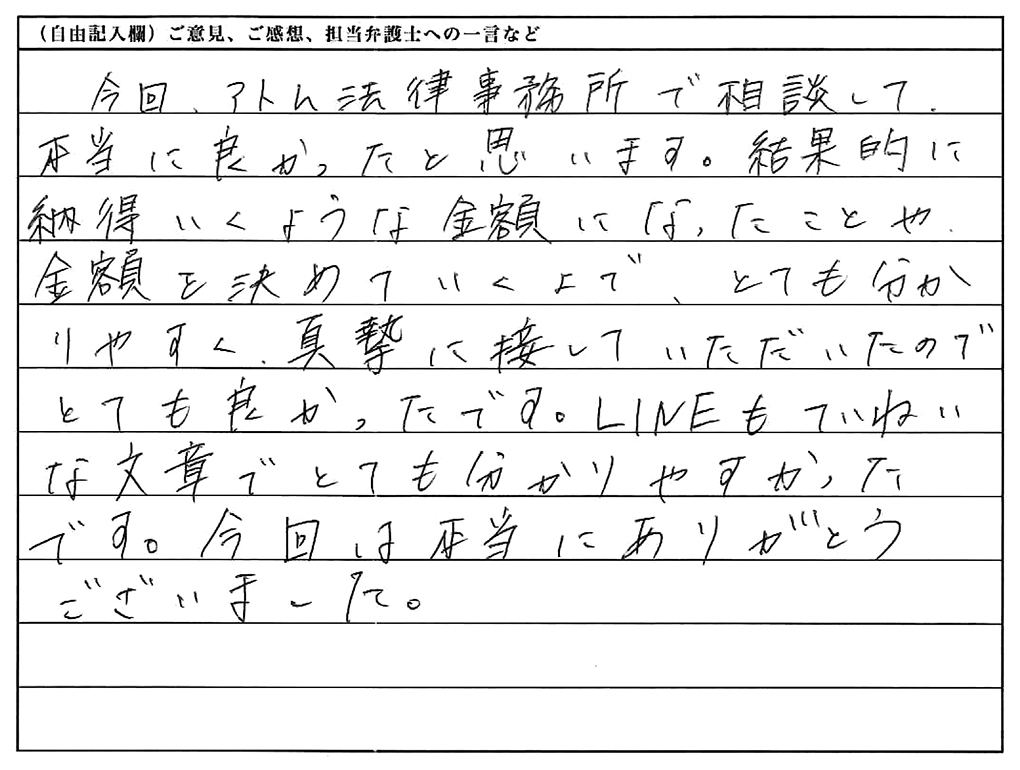 （自由記入欄）ご意見、ご感想、担当弁護士への一言など
今回、アトム法律事務所で相談して、
本当に良かったと思います。結果的に
納得いくような金額になったことや、
金額を決めていく上で、とても分か
りやすく、真摯に接していただいたので
とても良かったです。LINEもていねい
な文章でとても分かりやすかった
です。今回は本当にありがとう
ございました。